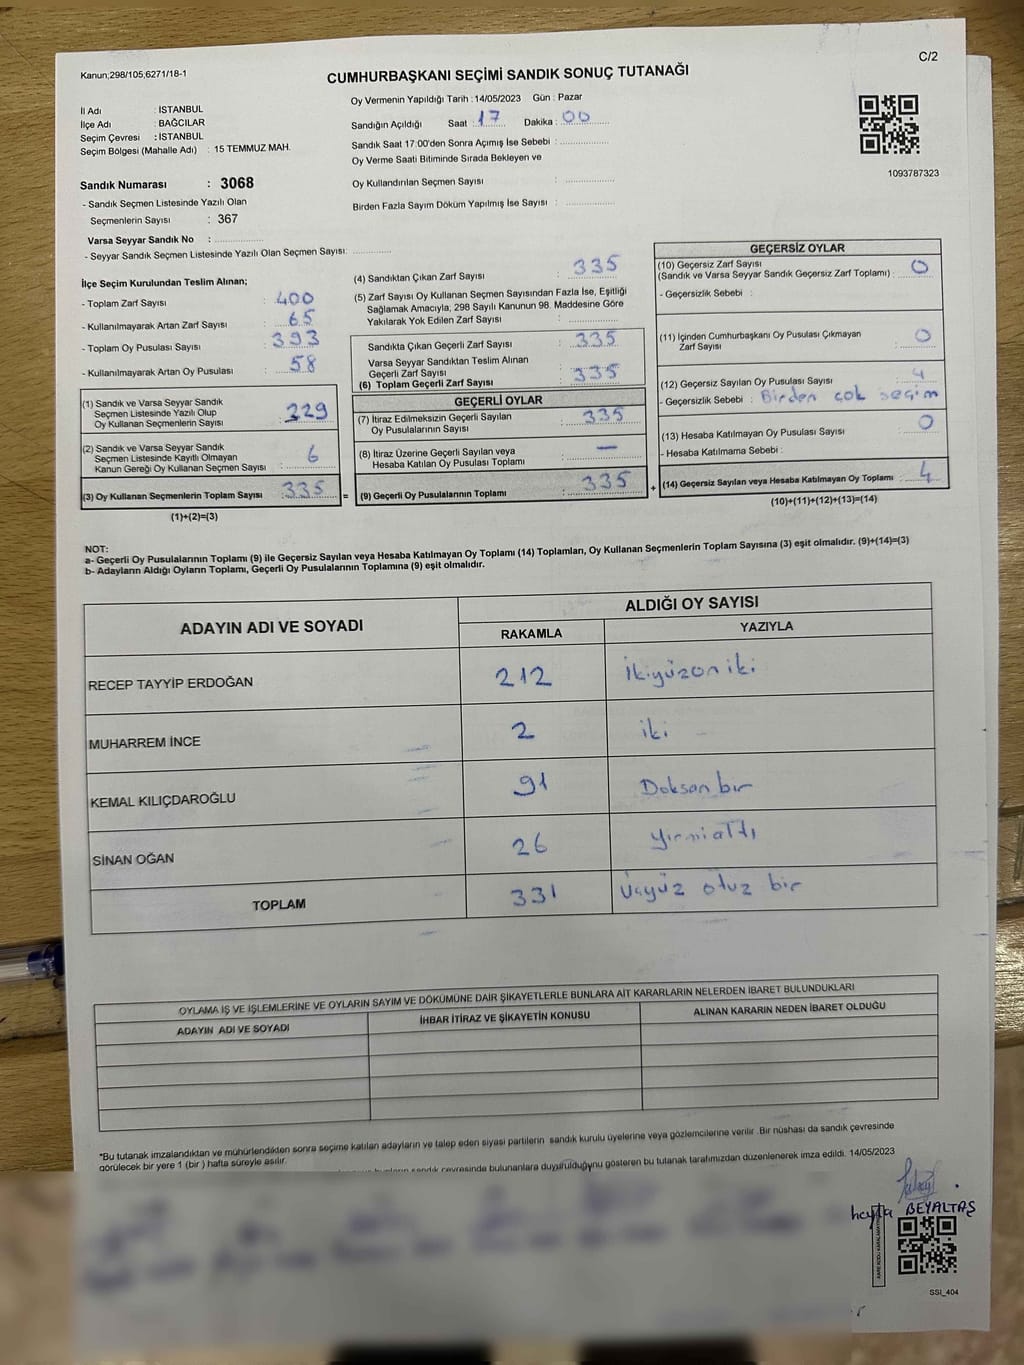 Kanun;298/105;6271/18-1
C/2
CUMHURBAŞKANI SEÇİMİ SANDIK SONUÇ TUTANAĞI
İl Adı : İSTANBUL
İlçe Adı : BAĞCILAR
Seçim Çevresi : İSTANBUL
Seçim Bölgesi (Mahalle Adı) : 15 TEMMUZ MAH.
Sandık Numarası : 3068
- Sandık Seçmen Listesinde Yazılı Olan
Seçmenlerin Sayısı : 367
Varsa Seyyar Sandık No :
- Seyyar Sandık Seçmen Listesinde Yazılı Olan Seçmen Sayısı:
Oy Vermenin Yapıldığı Tarih : 14/05/2023 Gün : Pazar
Sandığın Açıldığı Saat : 17 Dakika : 00
Sandık Saat 17:00'den Sonra Açımış İse Sebebi :
Oy Verme Saati Bitiminde Sırada Bekleyen ve
Oy Kullandırılan Seçmen Sayısı :
Birden Fazla Sayım Döküm Yapılmış İse Sayısı :
1093787323
İlçe Seçim Kurulundan Teslim Alınan;
- Toplam Zarf Sayısı : 400
- Kullanılmayarak Artan Zarf Sayısı : 65
- Toplam Oy Pusulası Sayısı : 393
- Kullanılmayarak Artan Oy Pusulası : 58
(1) Sandık ve Varsa Seyyar Sandık
Seçmen Listesinde Yazılı Olup
Oy Kullanan Seçmenlerin Sayısı : 329
(2) Sandık ve Varsa Seyyar Sandık
Seçmen Listesinde Kayıtlı Olmayan
Kanun Gereği Oy Kullanan Seçmen Sayısı : 6
(3) Oy Kullanan Seçmenlerin Toplam Sayısı : 335 =
(1)+(2)=(3)
(4) Sandıktan Çıkan Zarf Sayısı : 335
(5) Zarf Sayısı Oy Kullanan Seçmen Sayısından Fazla İse, Eşitliği
Sağlamak Amacıyla, 298 Sayılı Kanunun 98. Maddesine Göre
Yakılarak Yok Edilen Zarf Sayısı :
Sandıkta Çıkan Geçerli Zarf Sayısı : 335
Varsa Seyyar Sandıktan Teslim Alınan
Geçerli Zarf Sayısı
(6) Toplam Geçerli Zarf Sayısı : 335
GEÇERLİ OYLAR
(7) İtiraz Edilmeksizin Geçerli Sayılan
Oy Pusulalarının Sayısı : 335
(8) İtiraz Üzerine Geçerli Sayılan veya
Hesaba Katılan Oy Pusulası Toplamı : —
(9) Geçerli Oy Pusulalarının Toplamı : 335 +
GEÇERSİZ OYLAR
(10) Geçersiz Zarf Sayısı
(Sandık ve Varsa Seyyar Sandık Geçersiz Zarf Toplamı) : 0
- Geçersizlik Sebebi :
(11) İçinden Cumhurbaşkanı Oy Pusulası Çıkmayan
Zarf Sayısı : 0
(12) Geçersiz Sayılan Oy Pusulası Sayısı : 4
- Geçersizlik Sebebi : Birden çok seçim
(13) Hesaba Katılmayan Oy Pusulası Sayısı : 0
- Hesaba Katılmama Sebebi :
(14) Geçersiz Sayılan veya Hesaba Katılmayan Oy Toplamı : 4
(10)+(11)+(12)+(13)=(14)
NOT:
a- Geçerli Oy Pusulalarının Toplamı (9) ile Geçersiz Sayılan veya Hesaba Katılmayan Oy Toplamı (14) Toplamları, Oy Kullanan Seçmenlerin Toplam Sayısına (3) eşit olmalıdır. (9)+(14)=(3)
b- Adayların Aldığı Oyların Toplamı, Geçerli Oy Pusulalarının Toplamına (9) eşit olmalıdır.
ADAYIN ADI VE SOYADI ALDIĞI OY SAYISI
RAKAMLA YAZIYLA
RECEP TAYYİP ERDOĞAN 212 İkiyüzoniki
MUHARREM İNCE 2 iki
KEMAL KILIÇDAROĞLU 91 Doksan bir
SİNAN OĞAN 26 yirmialtı
TOPLAM 331 Üçyüz otuz bir
OYLAMA İŞ VE İŞLEMLERİNE VE OYLARIN SAYIM VE DÖKÜMÜNE DAİR ŞİKAYETLERLE BUNLARA AİT KARARLARIN NELERDEN İBARET BULUNDUKLARI
ADAYIN ADI VE SOYADI İHBAR İTİRAZ VE ŞİKAYETİN KONUSU ALINAN KARARIN NEDEN İBARET OLDUĞU
*Bu tutanak imzalandıktan ve mühürlendikten sonra seçime katılan adayların ve talep eden siyasi partilerin sandık kurulu üyelerine veya gözlemcilerine verilir .Bir nüshası da sandık çevresinde
görülecek bir yere 1 (bir ) hafta süreyle asılır.
sandık çevresinde bulunanlara duyurulduğunu gösteren bu tutanak tarafımızdan düzenlenerek imza edildi. 14/05/2023
BEYALTAŞ
SSI_404